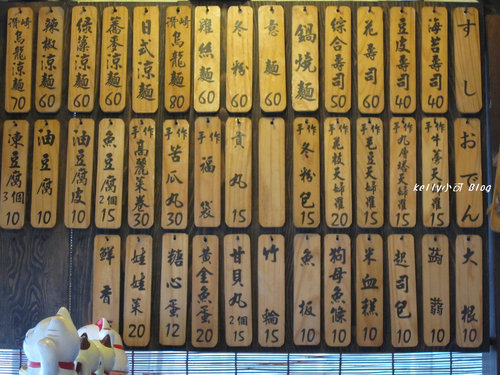 すし
海苔壽司 40
豆皮壽司 40
花壽司 60
綜合壽司 50
鍋燒麵
意麵 60
冬粉 60
雞絲麵 60
讚崎烏龍麵 80
日式涼麵
蕎麥涼麵 60
綠藻涼麵 60
辣椒涼麵 60
讚崎烏龍涼麵 70
おでん
手作牛蒡天婦羅 15
手作九層塔天婦羅 15
手作毛豆天婦羅 15
手作花枝天婦羅 20
手作冬粉包 15
貢丸 15
手作福袋
手作苦瓜丸 30
手作高麗菜卷 30
魚豆腐 2個 15
油豆腐皮 10
油豆腐 10
凍豆腐 3個 10
大根 10
蒟蒻 10
起司包 10
米血糕 10
狗母魚條 10
魚板 10
竹輪 15
甘貝丸 2個 15
黃金魚蛋 20
糖心蛋 12
娃娃菜 20
鮮香
kelly小可 Blog